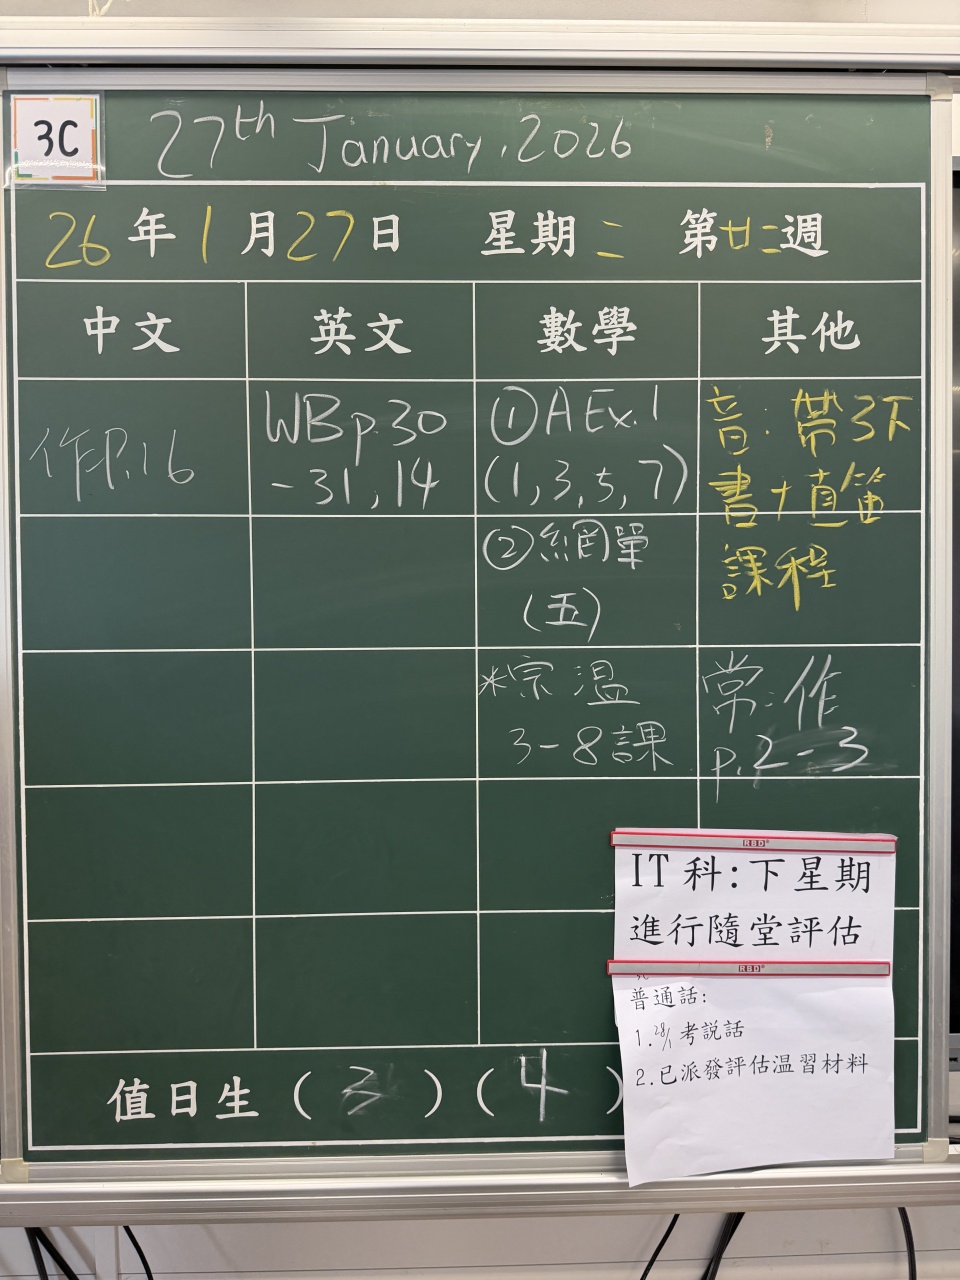 3C
27th January, 2026
26年1月27日 星期二 第廿二週
中文 英文 數學 其他
作P.16
WBp.30
-31,14
①A Ex.1
(1,3,5,7)
②網單
(五)
*宗溫
3-8課
音:帶3下
書+直笛
課程
常:作
p.2-3
RBD
IT科:下星期
進行隨堂評估
RBD
普通話:
1.28/1考說話
2.已派發評估温習材料
值日生(3)(4)